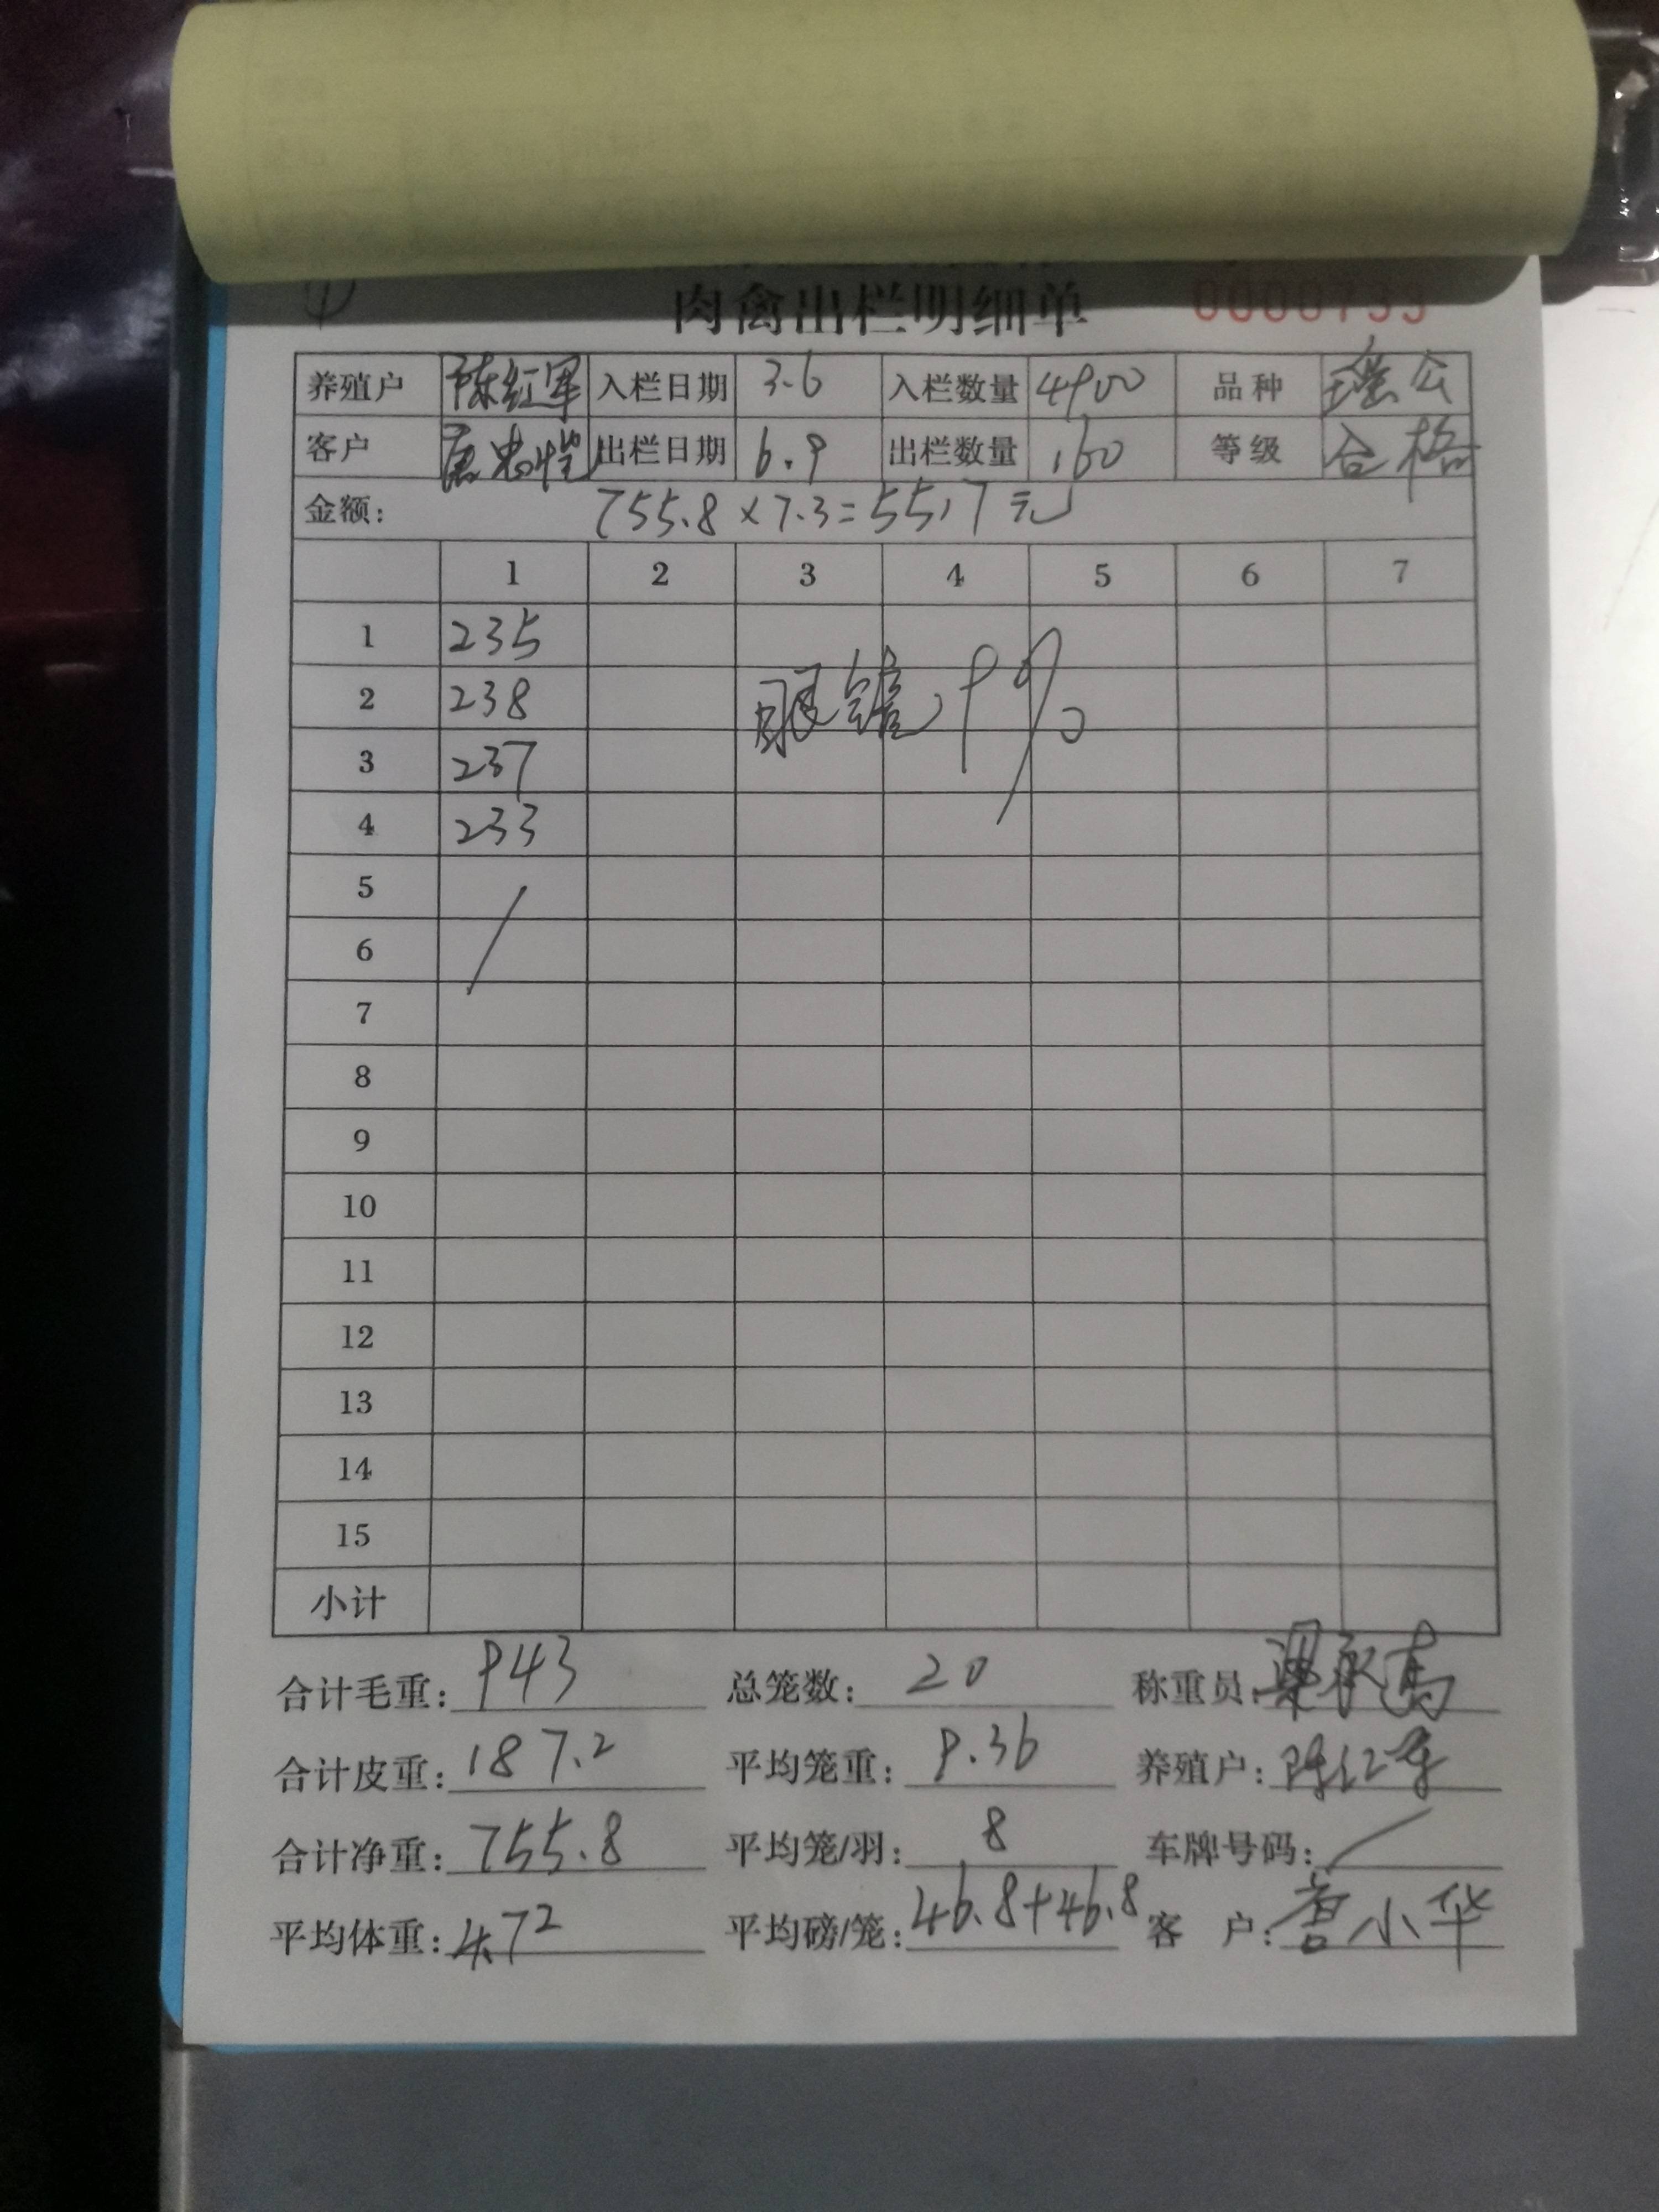 ①
肉禽出栏明细单 0000733
养殖户 陈红军 入栏日期 3.6 入栏数量 4900 品种 瑶公
客户 唐忠恺 出栏日期 6.9 出栏数量 160 等级 合格
金额: 755.8×7.3=5517元
1 2 3 4 5 6 7
1 235
2 238 眼镜 9%
3 237
4 233
5
6
7
8
9
10
11
12
13
14
15
小计
合计毛重: 943 总笼数: 20 称重员:
合计皮重: 187.2 平均笼重: 9.36 养殖户: 陈红军
合计净重: 755.8 平均笼/羽: 8 车牌号码: /
平均体重: 4.72 平均磅/笼: 46.8+46.8 客户: 唐小华